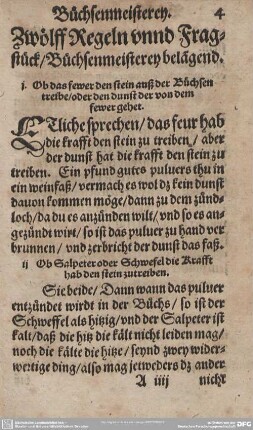 Büchsenmeisterey. 4
Zwölff Regeln vnnd Frag-
stück / Büchsenmeisterey belägend.
j Ob das fewer den stein auß der Büchsen
treibe / oder den dunst der von dem
fewer gehet.
ETliche sprechen / das feur hab
die krafft den stein zu treiben / aber
der dunst hat die krafft den stein zu
treiben. Ein pfund gutes puluers thu in
ein weinfaß / vermach es wol dz kein dunst
dauon kommen möge / dann zu dem zünd-
loch / da du es anzünden wilt / vnd so es an-
gezündt wirt / so ist das puluer zu hand ver
brunnen / vnd zerbricht der dunst das faß.
ij Ob Salpeter oder Schwefel die Krafft
hab den stein zutreiben.
Sie beide / Dann wann das puluer
entzündet wirdt in der Büchs / so ist der
Schweffel als hitzig / vnd der Salpeter ist
kalt / daß die hitz die kält nicht leiden mag /
noch die kälte die hitze / seynd zwey wider-
wertige ding / also mag jetweders dz ander
A iiij nicht